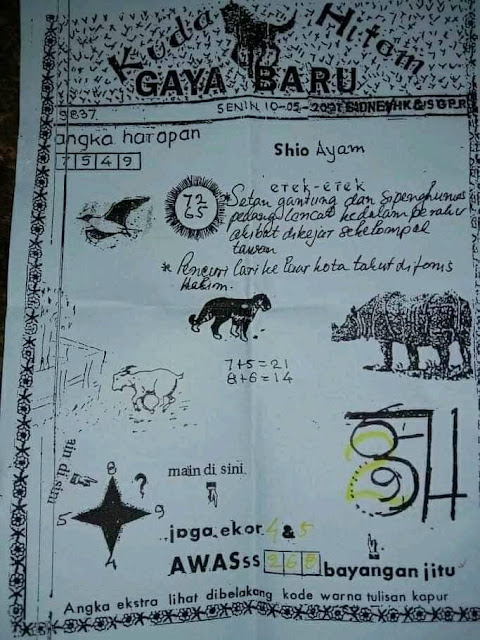 Kuda Hitam
GAYA BARU
SENIN 10-05-2021 SIDNEY HK & SGP.R
9837.
angka harapan
Shio Ayam
1549
erek-erek
72
65
* Setan gantung dan si penghunus
pedang loncat kedalam perahu
akibat dikejar sekelompok
tawon
* Pencuri lari ke luar kota takut difonis
Hakim.
7+5=21
8+6=14
main di sini
main di sini
8
?
5
9
4
jaga ekor 4 & 5
AWASss 268 bayangan jitu
Angka ekstra lihat dibelakang kode warna tulisan kapur